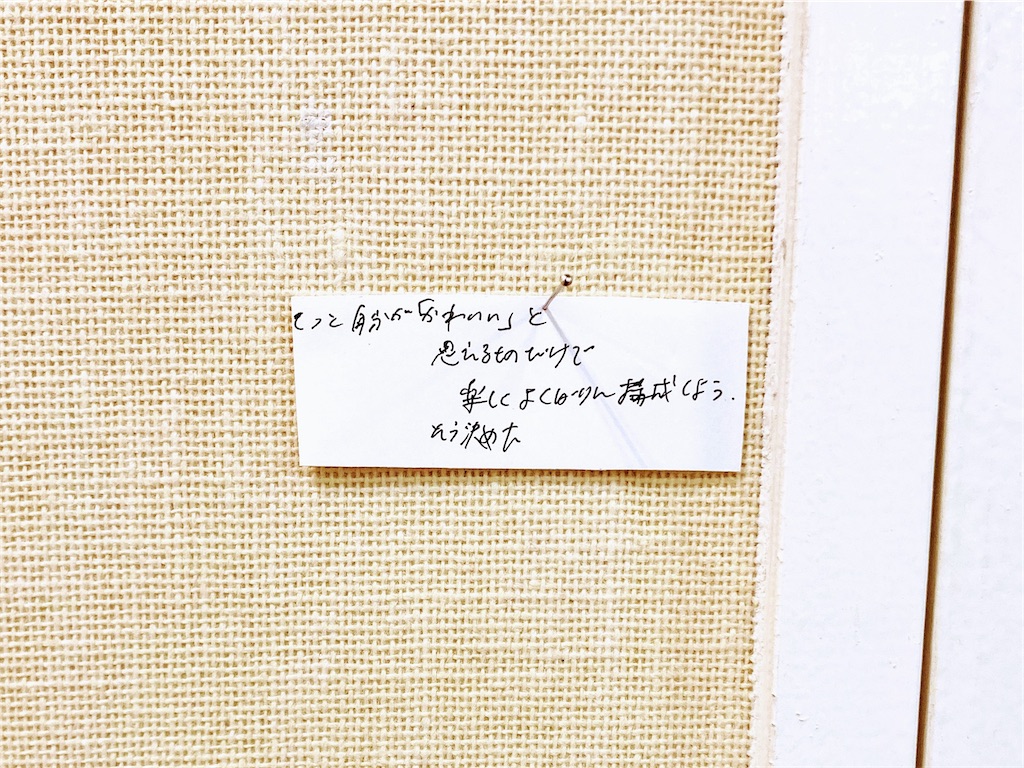 もっと自分が「かわいい」と
思えるものだけで
楽しくよくばりに構成しよう.
そう決めた